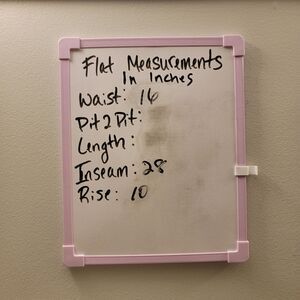 Flat Measurements
In Inches
Waist: 16
Pit 2 Pit:
Length:
Inseam: 28
Rise: 10